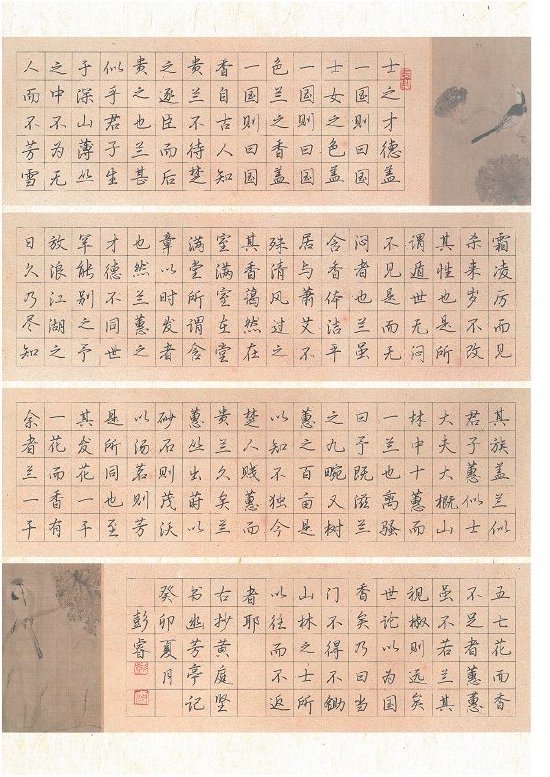 士之才德盖
一国则曰国
士女之色盖
一国则曰国
色兰之香盖
一国则曰国
香自古人知
贵兰不待楚
之逐臣而后
贵之也兰甚
似乎君子生
于深山薄丛
之中不为无
人而不芳雪
霜凌厉而见
杀来岁不改
其性也是所
谓遁世无闷
不见是而无
闷者也兰虽
含香体洁平
居与萧艾不
殊清风过之
其香蔼然在
室满室在堂
满堂所谓含
章以时发者
也然兰蕙之
才德不同世
罕能别之予
放浪江湖之
日久乃尽知
其族盖兰似
君子蕙似士
大夫大概山
林中十蕙而
一兰也离骚
曰予既滋兰
之九畹又树
蕙之百亩是
以知不独今
楚人贱蕙而
贵兰久矣兰
蕙丛出莳以
砂石则茂沃
以汤茗则芳
是所同也至
其发花一干
一花而香有
余者兰一干
五七花而香
不足者蕙蕙
虽不若兰其
视椒则远矣
世论以为国
香矣乃曰当
门不得不锄
山林之士所
以往而不返
者耶
古抄黄庭坚
书幽芳亭记
癸卯夏月
彭睿